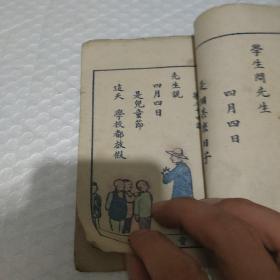 學生問先生
四月四日
是個甚麼日子
先生說
四月四日
是兒童節
這天 學校都放假